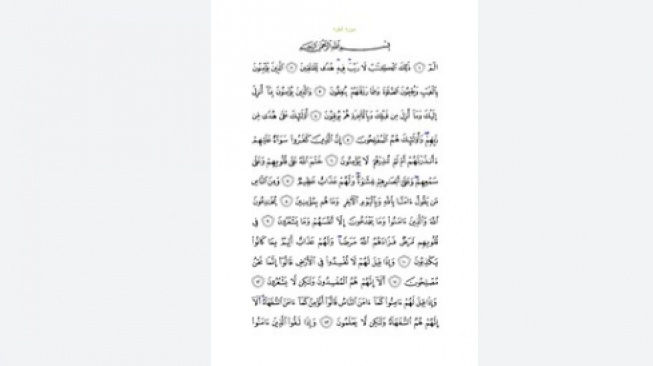 سورة البقرة
بِسْمِ اللَّهِ الرَّحْمَٰنِ الرَّحِيمِ
الٓمٓ ١ ذَٰلِكَ الْكِتَٰبُ لَا رَيْبَ فِيهِ هُدًى لِّلْمُتَّقِينَ ٢ الَّذِينَ يُؤْمِنُونَ
بِالْغَيْبِ وَيُقِيمُونَ الصَّلَوٰةَ وَمِمَّا رَزَقْنَٰهُمْ يُنفِقُونَ ٣ وَالَّذِينَ يُؤْمِنُونَ بِمَا أُنزِلَ
إِلَيْكَ وَمَا أُنزِلَ مِن قَبْلِكَ وَبِالْآخِرَةِ هُمْ يُوقِنُونَ ٤ أُولَٰئِكَ عَلَىٰ هُدًى مِّن
رَّبِّهِمْ وَأُولَٰئِكَ هُمُ الْمُفْلِحُونَ ٥ إِنَّ الَّذِينَ كَفَرُوا سَوَاءٌ عَلَيْهِمْ
ءَأَنذَرْتَهُمْ أَمْ لَمْ تُنذِرْهُمْ لَا يُؤْمِنُونَ ٦ خَتَمَ اللَّهُ عَلَىٰ قُلُوبِهِمْ وَعَلَىٰ
سَمْعِهِمْ وَعَلَىٰ أَبْصَٰرِهِمْ غِشَٰوَةٌ وَلَهُمْ عَذَابٌ عَظِيمٌ ٧ وَمِنَ النَّاسِ
مَن يَقُولُ ءَامَنَّا بِاللَّهِ وَبِالْيَوْمِ الْآخِرِ وَمَا هُم بِمُؤْمِنِينَ ٨ يُخَٰدِعُونَ
اللَّهَ وَالَّذِينَ ءَامَنُوا وَمَا يَخْدَعُونَ إِلَّا أَنفُسَهُمْ وَمَا يَشْعُرُونَ ٩ فِي
قُلُوبِهِم مَّرَضٌ فَزَادَهُمُ اللَّهُ مَرَضًا وَلَهُمْ عَذَابٌ أَلِيمٌ بِمَا كَانُوا
يَكْذِبُونَ ١٠ وَإِذَا قِيلَ لَهُمْ لَا تُفْسِدُوا فِي الْأَرْضِ قَالُوا إِنَّمَا نَحْنُ
مُصْلِحُونَ ١١ أَلَا إِنَّهُمْ هُمُ الْمُفْسِدُونَ وَلَٰكِن لَّا يَشْعُرُونَ ١٢
وَإِذَا قِيلَ لَهُمْ ءَامِنُوا كَمَا ءَامَنَ النَّاسُ قَالُوا أَنُؤْمِنُ كَمَا ءَامَنَ السُّفَهَاءُ أَلَا
إِنَّهُمْ هُمُ السُّفَهَاءُ وَلَٰكِن لَّا يَعْلَمُونَ ١٣ وَإِذَا لَقُوا الَّذِينَ ءَامَنُوا